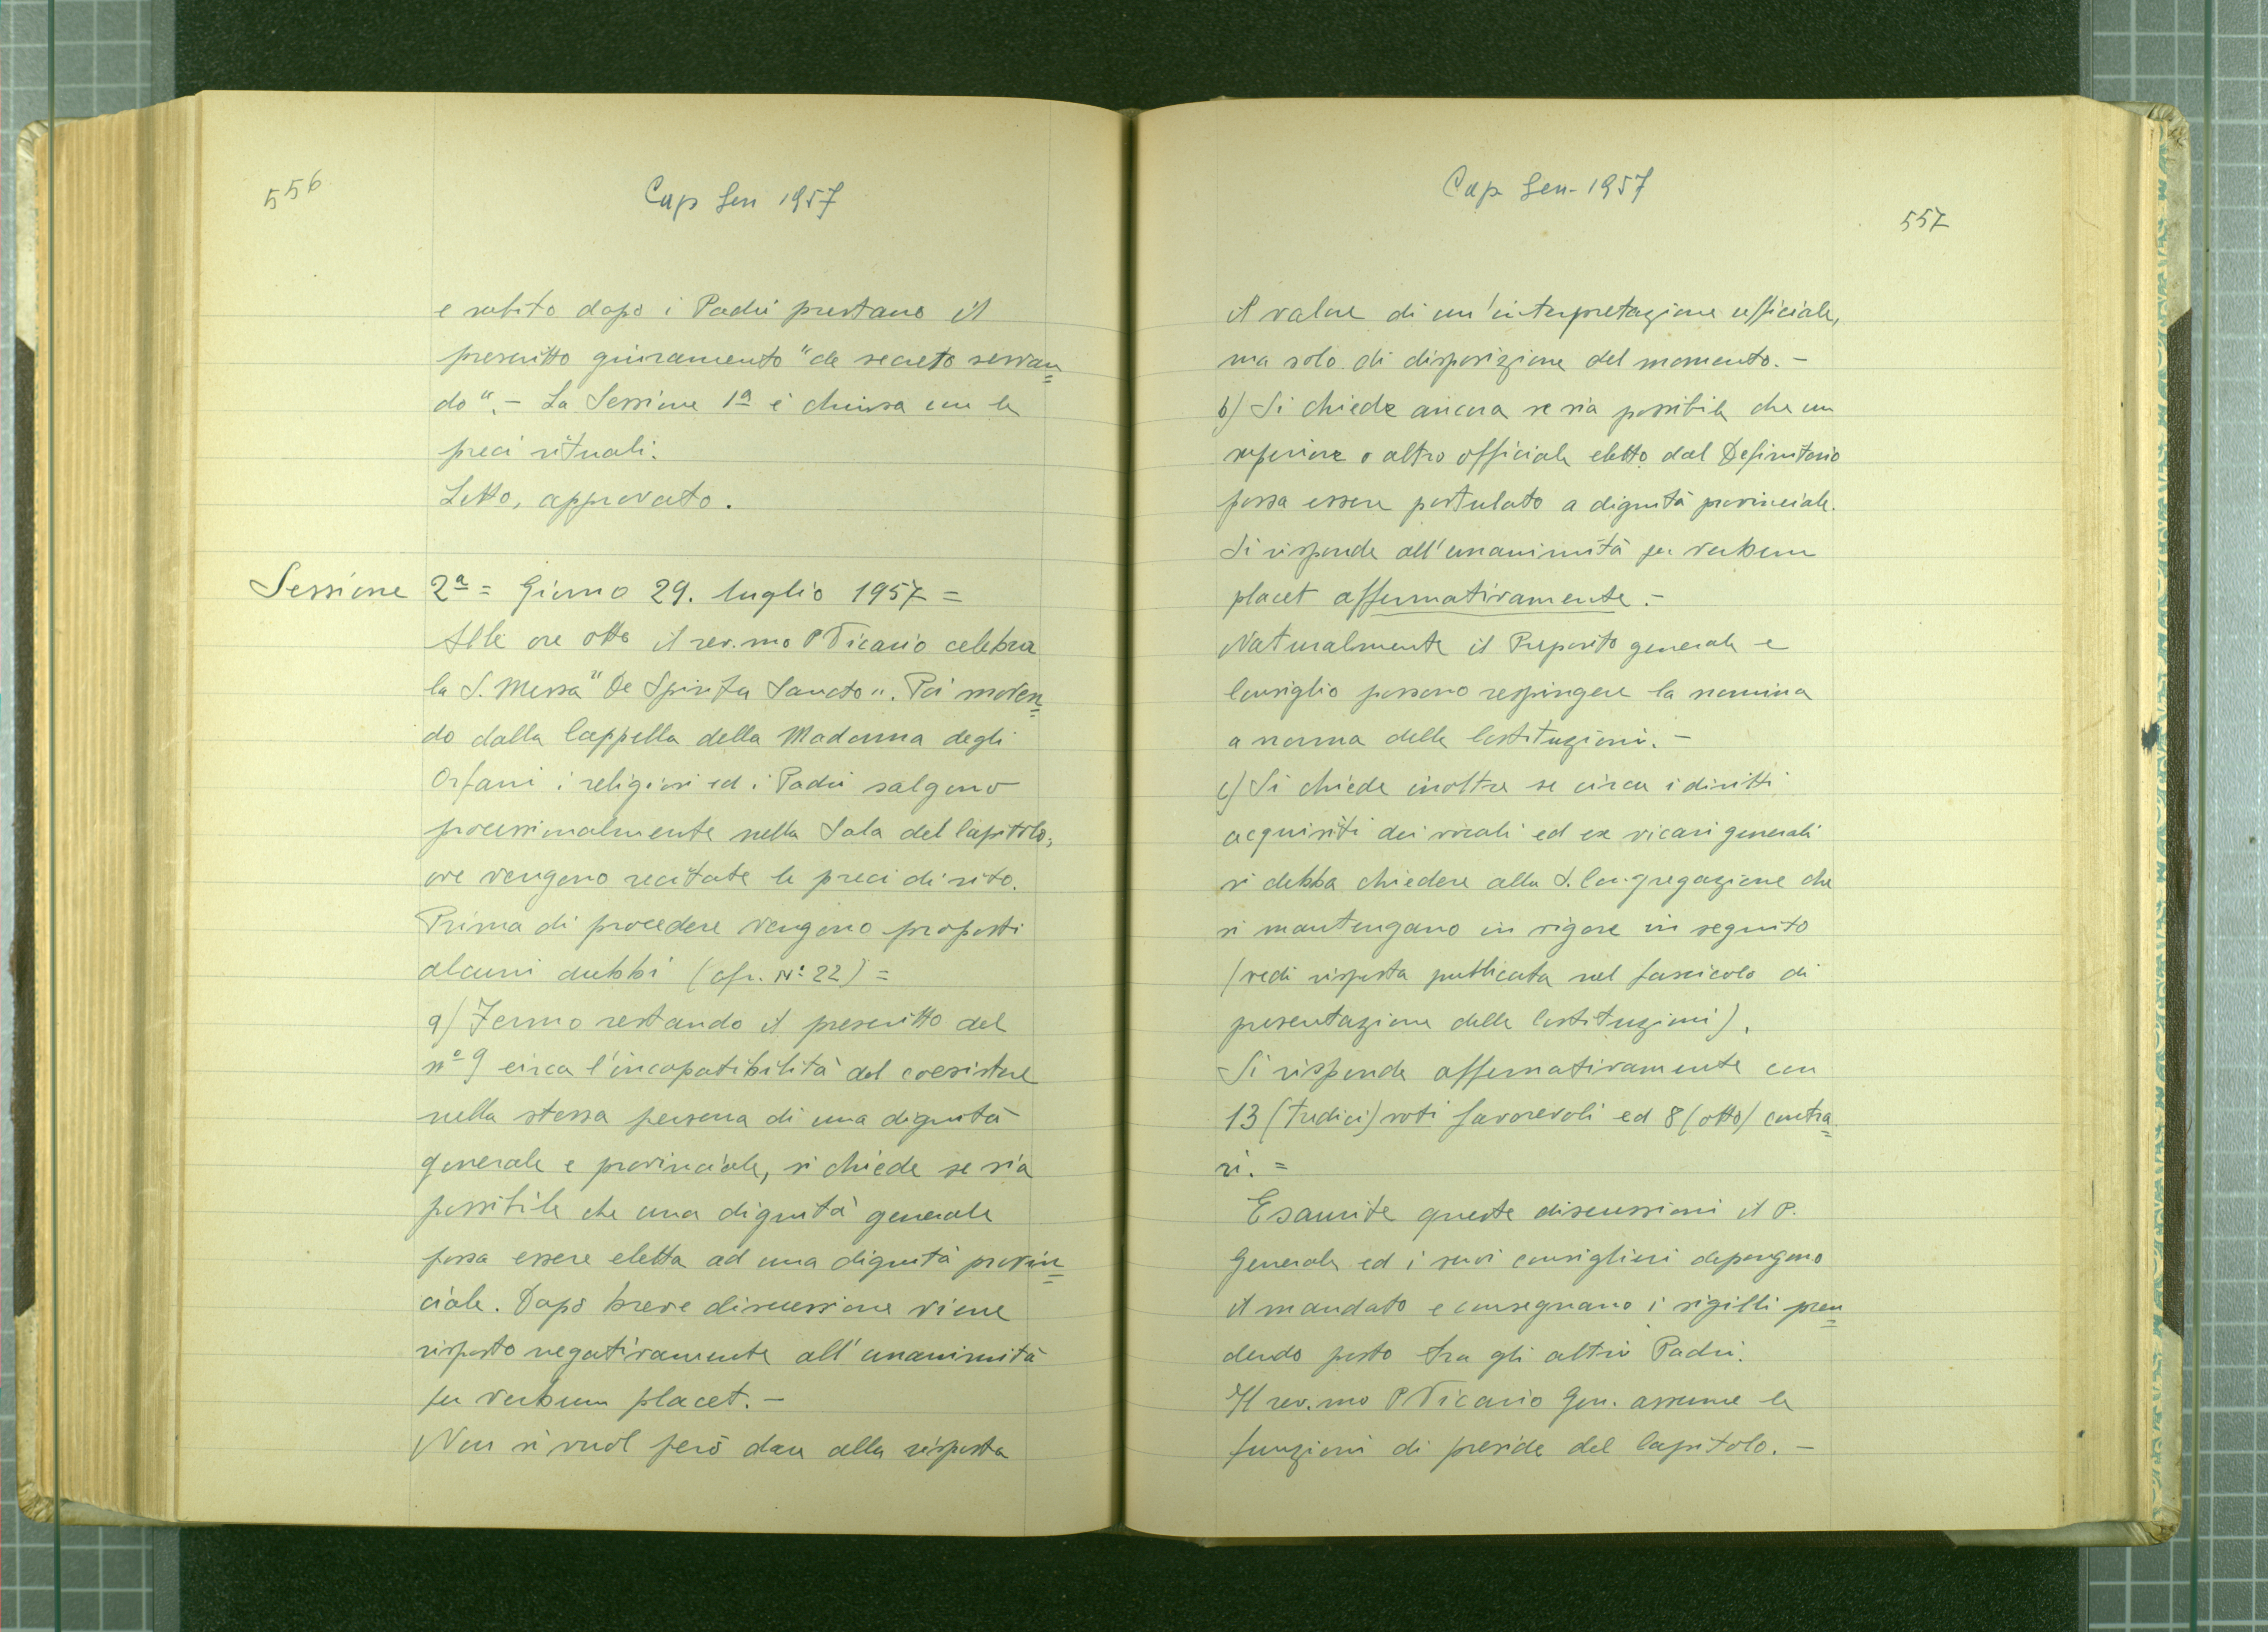 556
Cap Gen 1957
e subito dopo i Padri prestano il
prescritto giuramento "de secreto servan=
do". - La Sessione 1ª è chiusa con le
preci rituali.
Letto, approvato.
Sessione 2ª = Giorno 29. luglio 1957 =
Alle ore otto il rev.mo P Vicario celebra
la S. Messa "De Spiritu Sancto". Poi moven=
do dalla Cappella della Madonna degli
Orfani i religiosi ed i Padri salgono
processionalmente nella Sala del Capitolo,
ove vengono recitate le preci di rito.
Prima di procedere vengono proposti
alcuni dubbi (cfr. N: 22) =
a) Fermo restando il prescritto del
nº 9 circa l'incapatibilità del coesistere
nella stessa persona di una dignità
generale e provinciale, si chiede se sia
possibile che una dignità generale
possa essere eletta ad una dignità provin=
ciale. Dopo breve discussione viene
risposto negativamente all'unanimità
per verbum placet. -
Non si vuol però dare alla risposta
Cap Gen- 1957
557
il valore di un'interpretazione ufficiale,
ma solo di disposizione del momento. -
b) Si chiede ancora se sia possibile che un
superiore o altro officiale eletto dal Definitorio
possa essere postulato a dignità provinciale.
Si risponde all'unanimità per verbum
placet affermativamente. -
Naturalmente il Preposito generale e
Consiglio possono respingere la nomina
a norma delle Costituzioni. -
c) Si chiede inoltre se circa i diritti
acquisiti dei vocali ed ex vicari generali
si debba chiedere alla S. Congregazione che
si mantengano in vigore in seguito
(vedi risposta pubblicata nel fascicolo di
presentazione delle Costituzioni).
Si risponde affermativamente con
13 (tredici) voti favorevoli ed 8 (otto) contra=
ri. =
Esaurite queste discussioni il P.
Generale ed i suoi consiglieri depongono
il mandato e consegnano i sigilli pren=
dendo posto tra gli altri Padri.
Il rev.mo P Vicario Gen. assume le
funzioni di preside del Capitolo. -